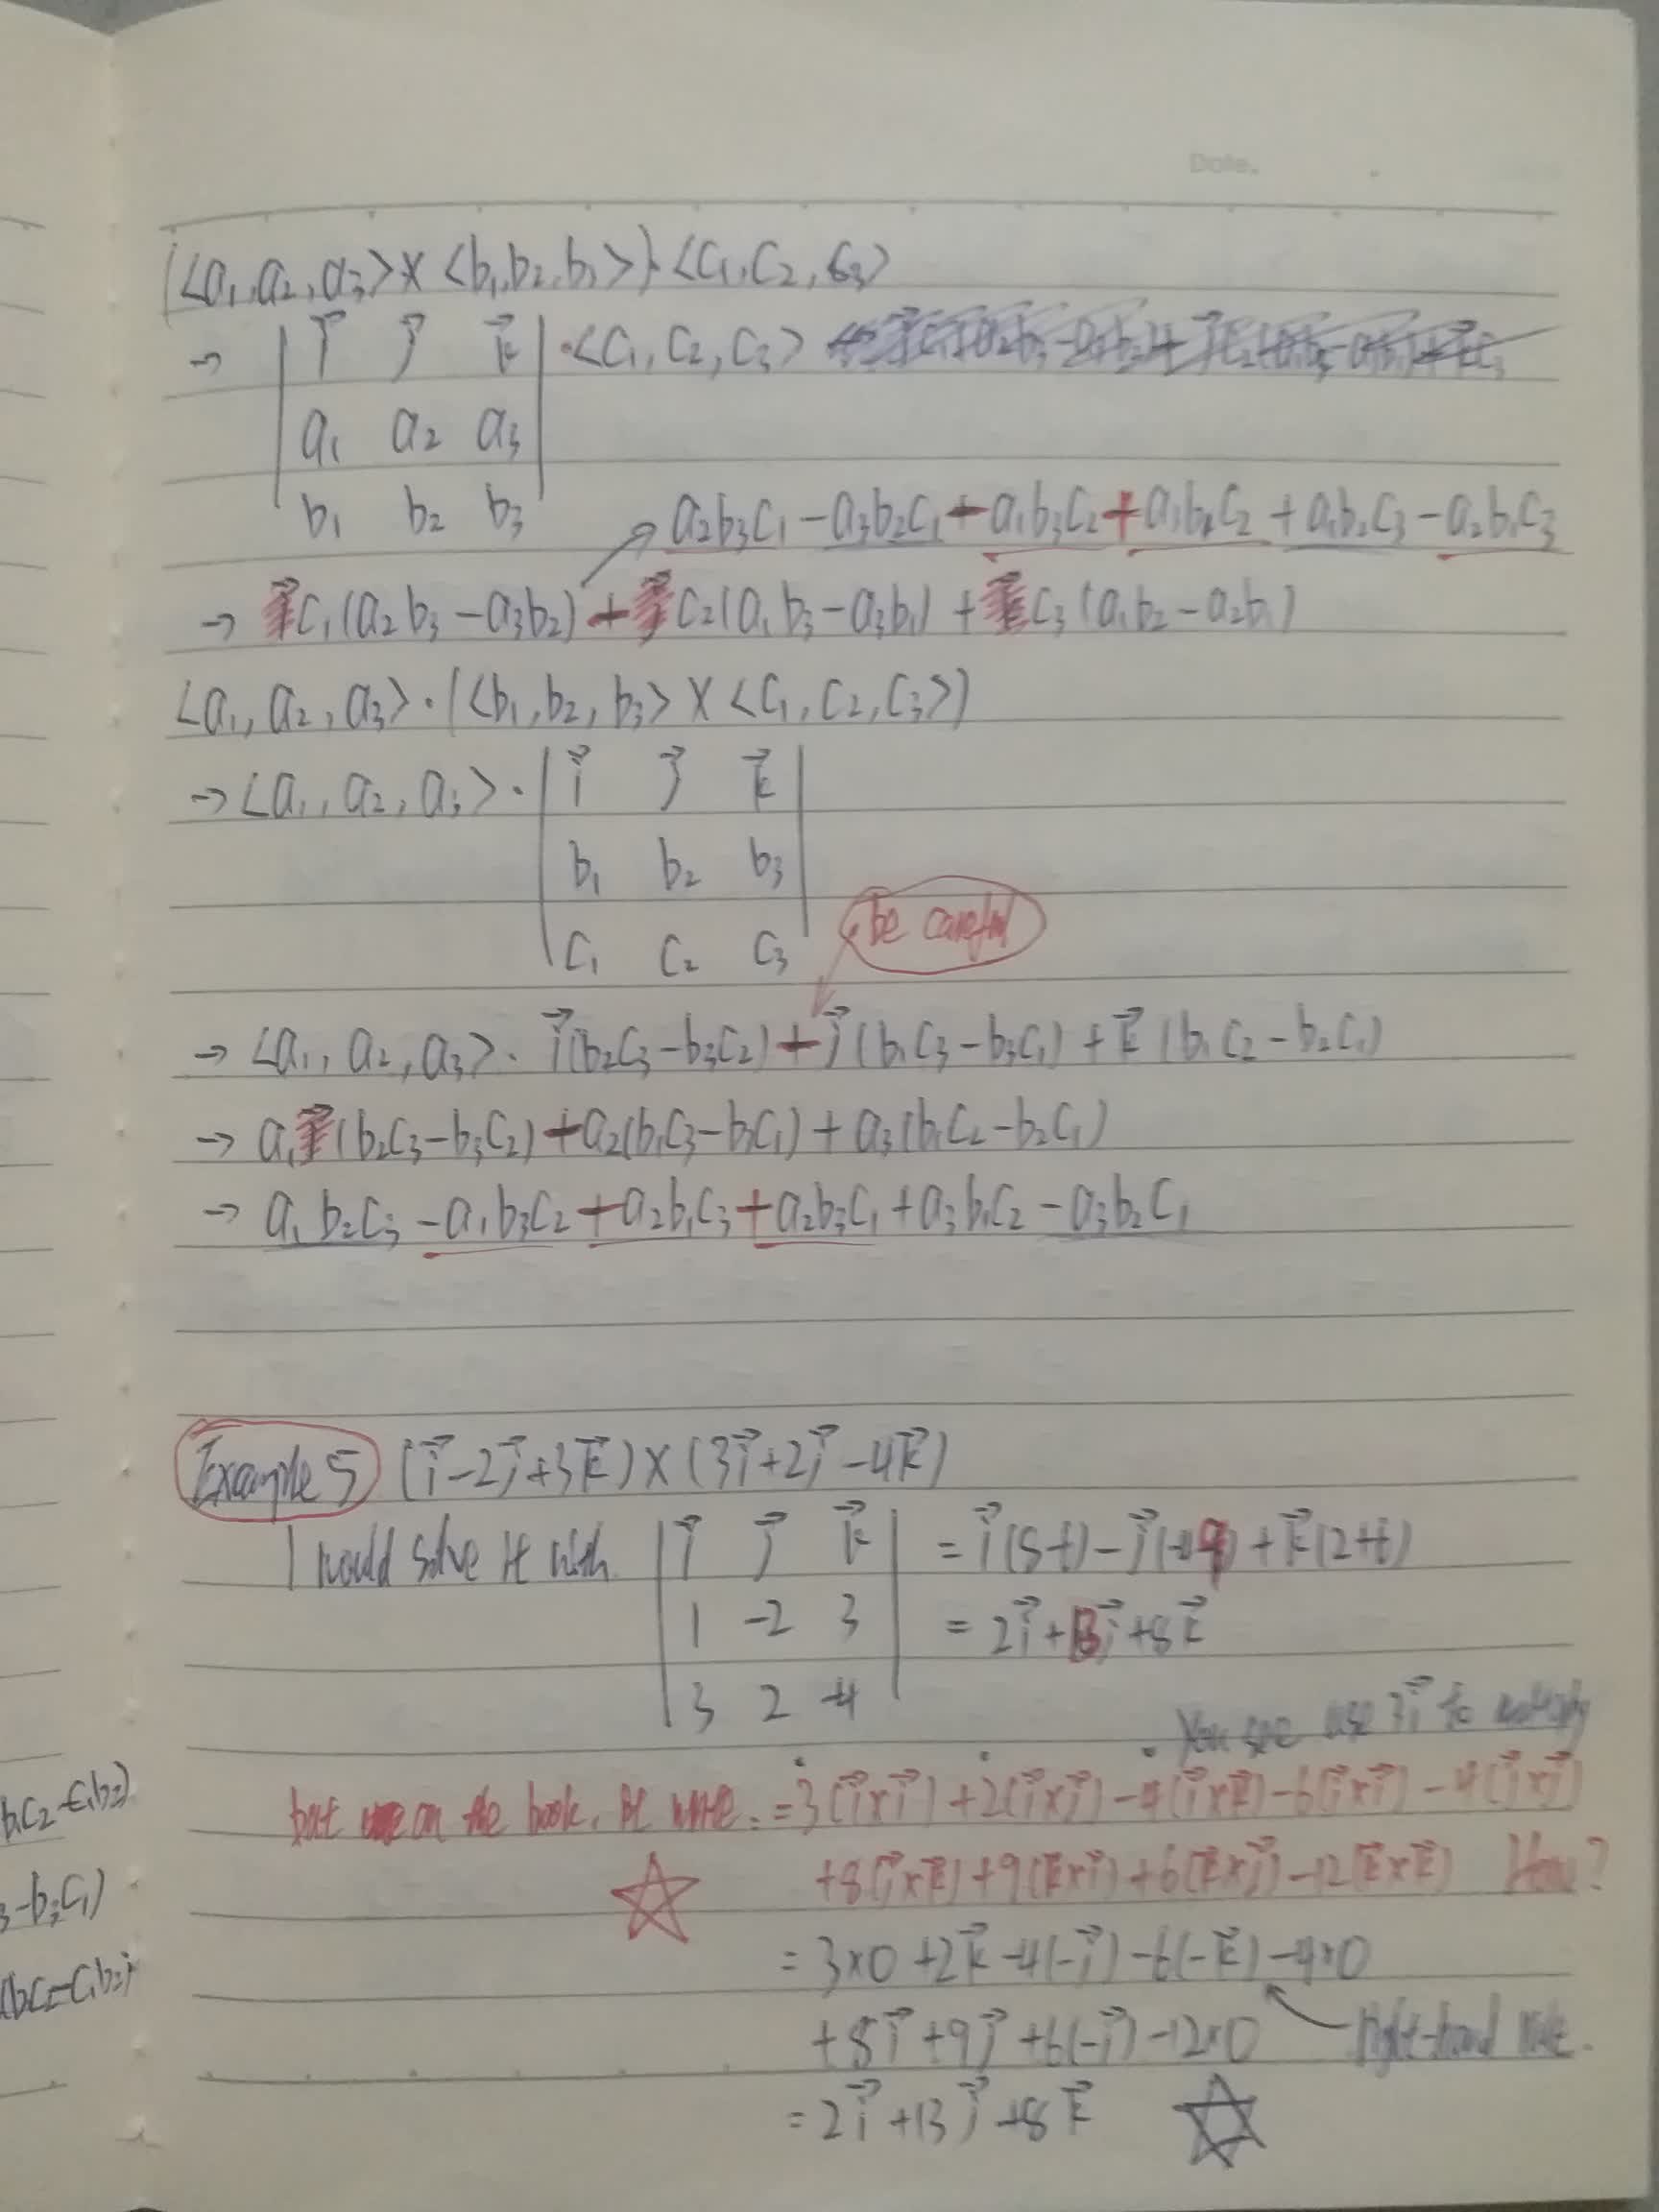 Date.
(<a₁,a₂,a₃>×<b₁,b₂,b₃>)·<c₁,c₂,c₃>
→ | i⃗ j⃗ k⃗ | ·<c₁,c₂,c₃>
a₁ a₂ a₃
b₁ b₂ b₃
a₂b₃c₁-a₃b₂c₁-a₁b₃c₂+a₃b₁c₂+a₁b₂c₃-a₂b₁c₃
→ c₁(a₂b₃-a₃b₂)-c₂(a₁b₃-a₃b₁)+c₃(a₁b₂-a₂b₁)
<a₁,a₂,a₃>·(<b₁,b₂,b₃>×<c₁,c₂,c₃>)
→<a₁,a₂,a₃>·| i⃗ j⃗ k⃗ |
b₁ b₂ b₃
c₁ c₂ c₃
be careful
→ <a₁,a₂,a₃>· i⃗(b₂c₃-b₃c₂)-j⃗(b₁c₃-b₃c₁)+k⃗(b₁c₂-b₂c₁)
→ a₁(b₂c₃-b₃c₂)-a₂(b₁c₃-b₃c₁)+a₃(b₁c₂-b₂c₁)
→ a₁b₂c₃-a₁b₃c₂-a₂b₁c₃+a₂b₃c₁+a₃b₁c₂-a₃b₂c₁
Example 5 (i⃗-2j⃗+3k⃗)×(3i⃗+2j⃗-4k⃗)
I would solve it with | i⃗ j⃗ k⃗ | = i⃗(8-6)-j⃗(-4-9)+k⃗(2+6)
1 -2 3 = 2i⃗+13j⃗+8k⃗
3 2 -4
You see use 3i⃗ to multiply
but on the book, it wrote: =3(i⃗×i⃗)+2(i⃗×j⃗)-4(i⃗×k⃗)-6(j⃗×i⃗)-4(j⃗×j⃗)
+8(j⃗×k⃗)+9(k⃗×i⃗)+6(k⃗×j⃗)-12(k⃗×k⃗) How?
= 3×0+2k⃗-4(-j⃗)-6(-k⃗)-4×0
+8i⃗+9j⃗+6(-i⃗)-12×0 right-hand rule.
=2i⃗+13j⃗+8k⃗
b₁c₂-c₁b₂)
-b₃c₁)